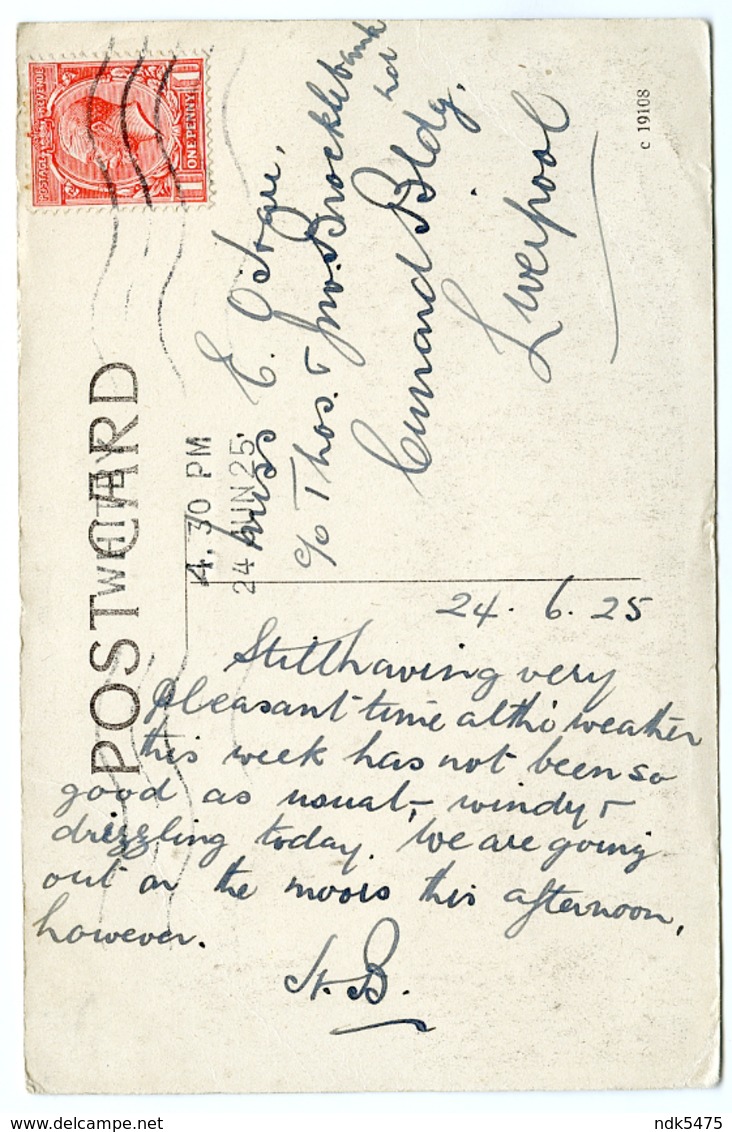 POSTAGE REVENUE
ONE PENNY
POST CARD
WHITBY
4.30 PM
24 JUN 25
c 19108
Miss E.
c/o Thos. & Jno. Brocklebank
Cunard Bldg,
Liverpool
24. 6. 25
Still having very
pleasant time altho' weather
this week has not been so
good as usual, windy &
drizzling today. We are going
out on the moors this afternoon,
however.
H.B.
www.delcampe.net
ndk5475